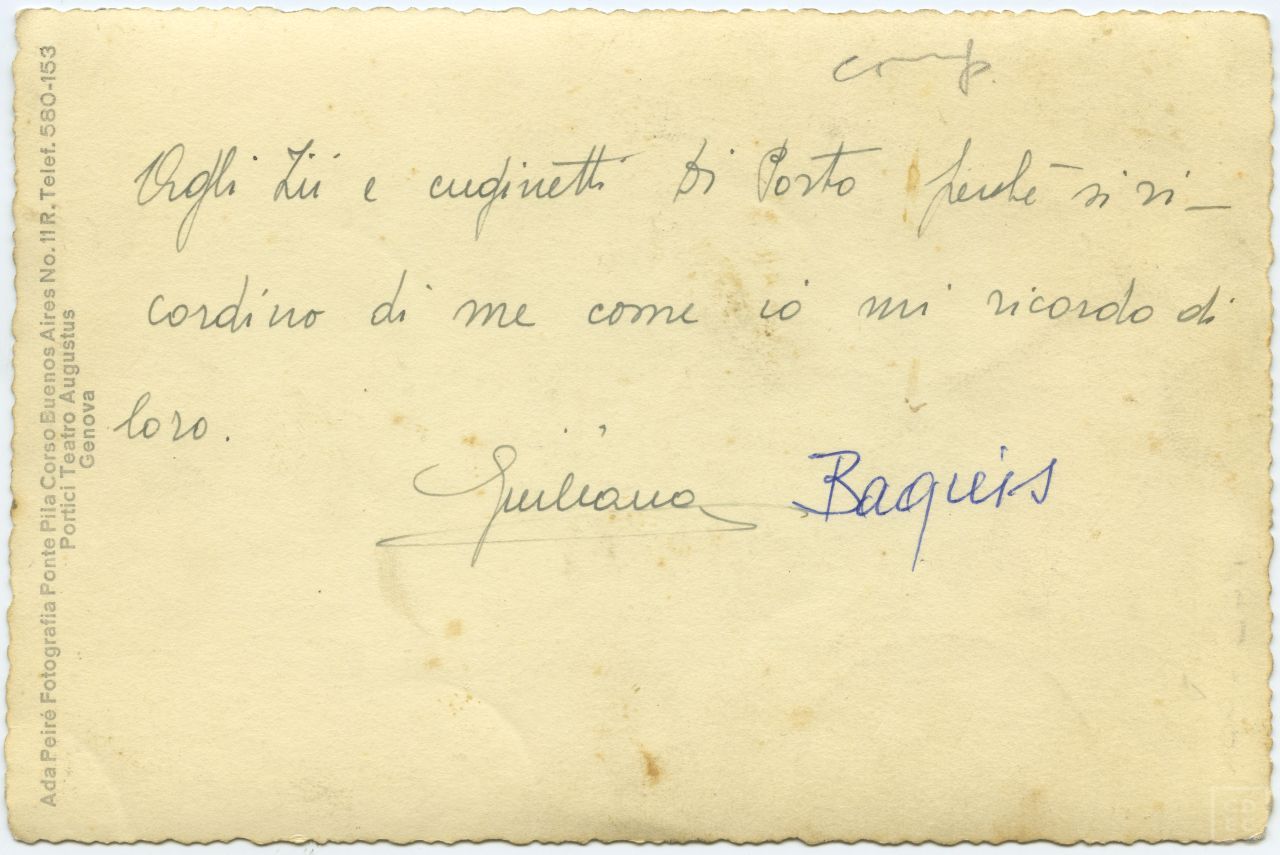 comp.
Agli Zii e cuginetti di Porto perchè si ri-
cordino di me come io mi ricordo di
loro.
Giuliana Baqueis
Ada Peiré Fotografia Ponte Pila Corso Buenos Aires No. 11 R. Telef. 580-153
Portici Teatro Augustus
Genova